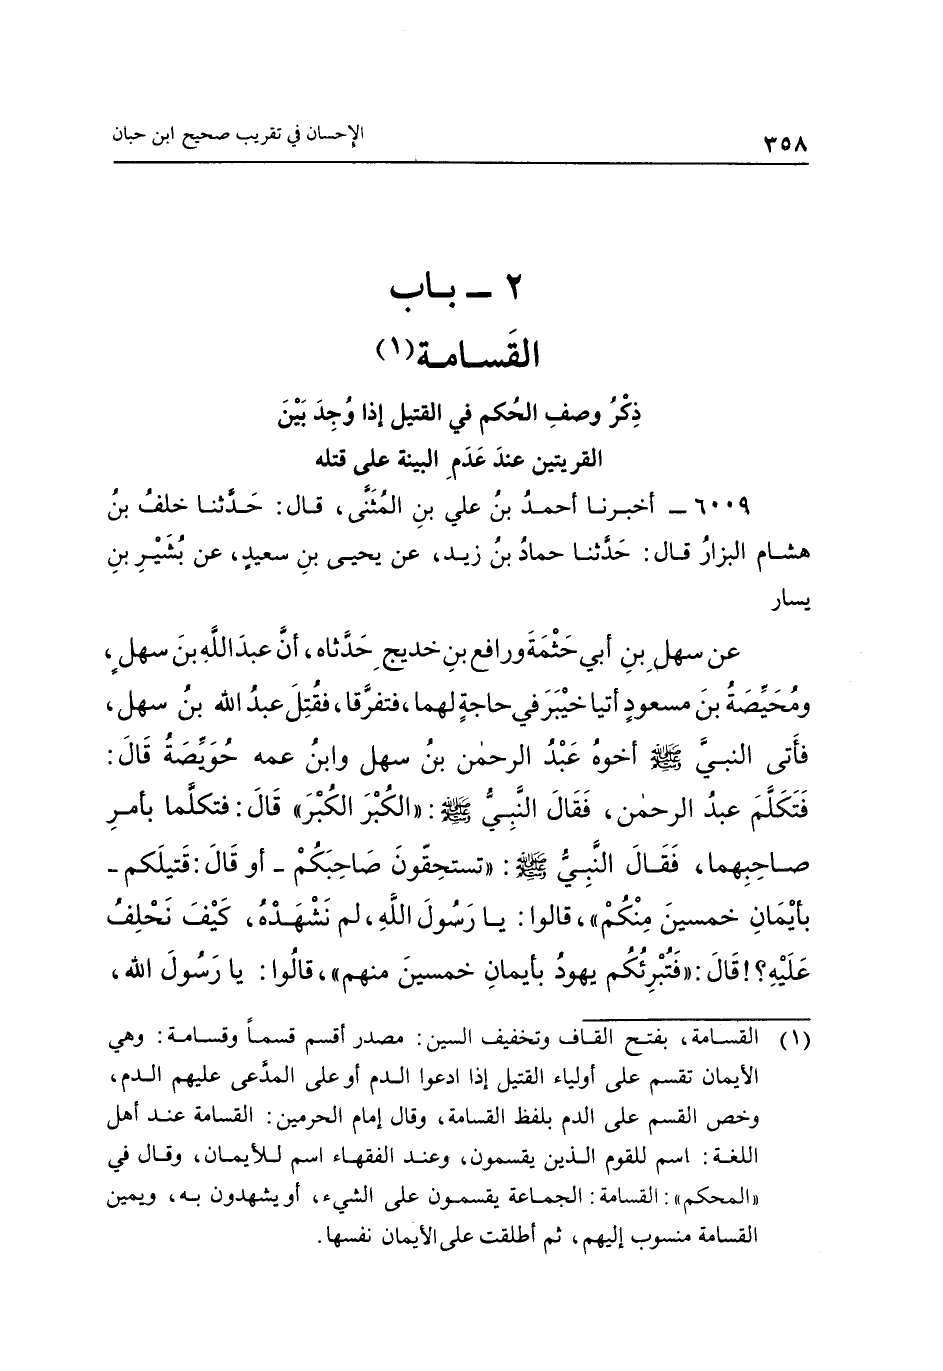 ٣٥٨
الإحسان في تقريب صحيح ابن حبان
٢ ـ بـاب
القَسـامـة(١)
ذِكْرُ وصفِ الحُكم في القتيل إذا وُجِدَ بَيْنَ
القريتين عندَ عَدَمِ البينة على قتله
٦٠٠٩ ـ أخبـرنـا أحمـدُ بنُ علي بنِ المُثَنَّى، قـال: حَـدَّثنـا خلفُ بنُ
هشـام البزارُ قـال: حَدَّثنـا حمادُ بنُ زيـد، عن يحيـى بنِ سعيدٍ، عن بُشَيْرِ بنِ
يسار
عن سهلِ بنِ أبي حَثْمَةَ ورافع بنِ خديجٍ حَدَّثاه، أنَّ عبدَ اللَّهِ بنَ سهلٍ،
ومُحَيِّصَةُ بنَ مسعودٍ أتيا خَيْبَرَ في حاجةٍ لهما، فتفرَّقا، فقُتِلَ عبدُ الله بنُ سهل،
فأَتى النبـيَّ ﷺ أخوهُ عَبْدُ الرحمٰن بنُ سهل وابنُ عمه حُوَيِّصَةُ قَالَ:
فَتَكَلَّمَ عبدُ الرحمٰن، فَقَالَ النَّبِـيُّ ﷺ: «الكُبْرَ الكُبْرَ» قَالَ: فتكلَّما بأمـرِ
صـاحِبِهما، فَقَـالَ النَّبِـيُّ ﷺ: «تستحِقّونَ صَاحِبَكُمْ ـ أو قَالَ: قَتيلَكم ـ
بأَيْمَانِ خمسينَ مِنْكُمْ»، قالوا: يـا رَسُولَ اللَّهِ، لم نَشْهَدْهُ، كَيْفَ نَحْلِفُ
عَلَيْهِ؟! قَالَ: «فَتُبْرِئُكُم يهودُ بأيمانِ خمسينَ منهم»، قالُوا: يا رَسُولَ الله،
(١) القسـامة، بفتـح القـاف وتخفيف السين: مصدر أقسم قسمـاً وقسـامـة: وهي
الأيمان تقسم على أولياء القتيل إذا ادعوا الـدم أو على المدَّعى عليهم الـدم،
وخص القسم على الدم بلفظ القسامة، وقال إمام الحرمين: القسامة عنـد أهل
اللغـة: اسم للقوم الـذين يقسمون، وعنـد الفقهـاء اسم لـلأيمـان، وقـال في
«المحكم»: القسامة: الجماعة يقسمـون على الشيء، أو يشهدون بـه، ويمين
القسامة منسوب إليهم، ثم أطلقت على الأيمان نفسها.